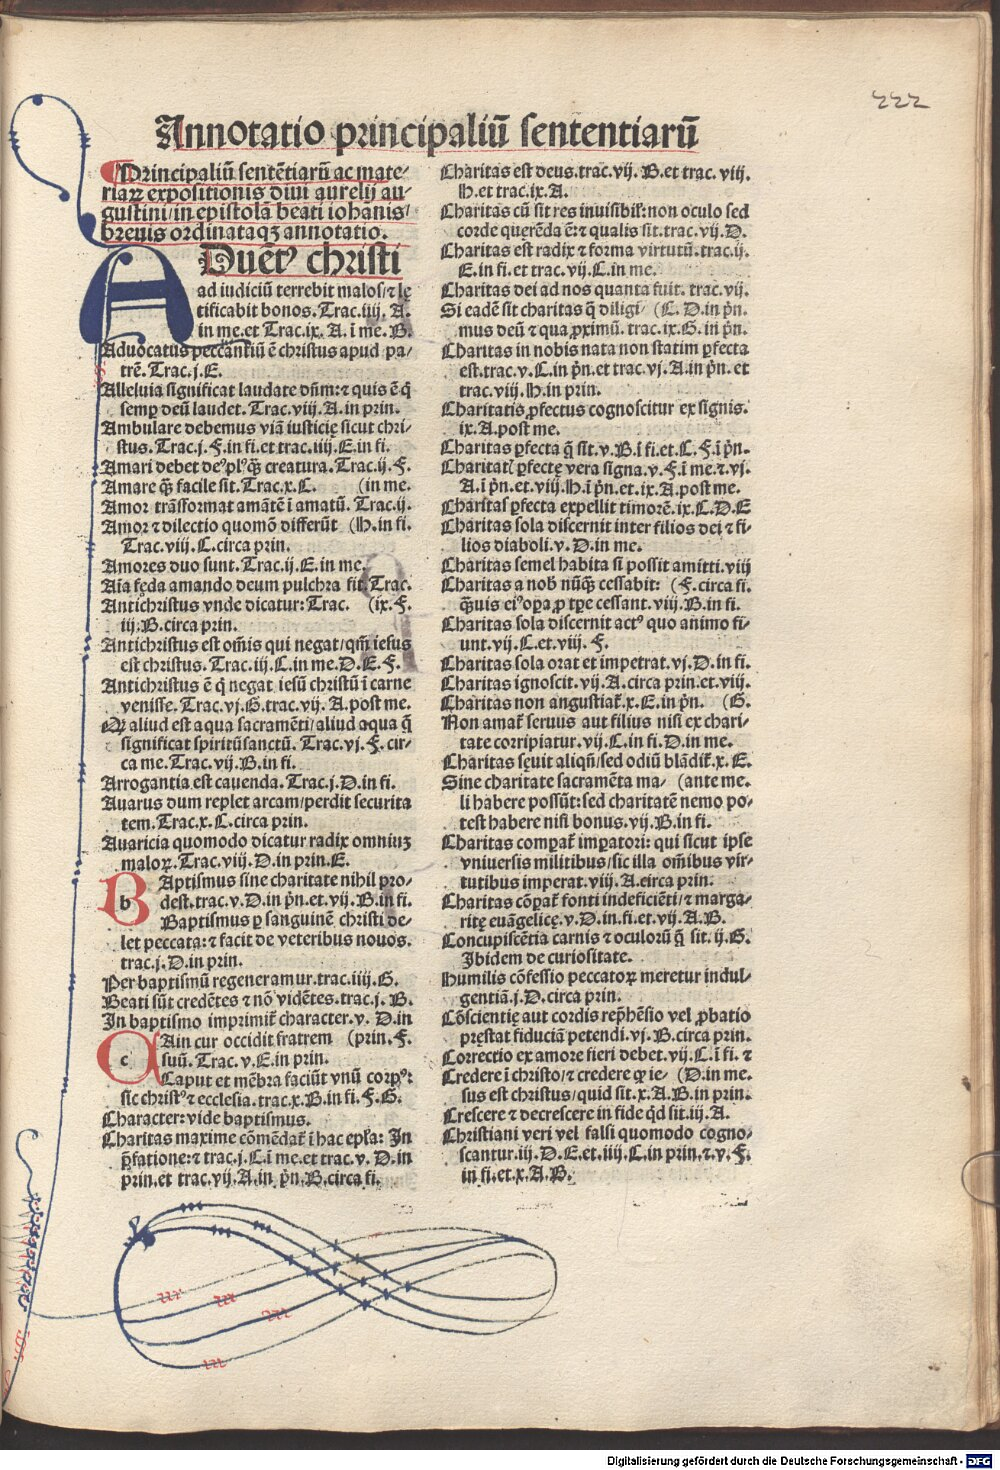 222
Annotatio principaliū sententiarū
Principaliū sentētiarū ac mate⸗
riaꝝ expositionis diui aurelij au⸗
gustini/in epistolā beati iohanis/
breuis ordinataqꝫ annotatio.
ADuētꝰ christi
ad iudiciū terrebit malos/⁊ lę
tificabit bonos. Trac.iiij. A.
in me.et Trac.ix. A. ī me. B.
Aduocatus peccantiū ē christus apud pa⸗
trē. Trac.j.E.
Alleluia significat laudate dn̄m:⁊ quis ē q̇
semꝑ deū laudet. Trac.viij. A.in prin.
Ambulare debemus viā iusticię sicut chri⸗
stus. Trac.j.F.in fi.et trac.iiij.E.in fi.
Amari debet deꝰ plꝰ q̄ꝫ creatura. Trac.ij.F.
Amare q̄ꝫ facile sit. Trac.x.C. (in me.
Amor trāsformat amātē ī amatū. Trac.ij.
Amor ⁊ dilectio quomō differūt (H.in fi.
Trac.viij.C.circa prin.
Amores duo sunt. Trac.ij.E.in me.
Aīa fęda amando deum pulchra fit. Trac.
Antichristus vnde dicatur: Trac. (ix.F.
iij.B.circa prin.
Antichristus est om̄is qui negat/qm̄ iesus
est christus. Trac.iij.C.in me.D.E.F.
Antichristus ē q̇ negat iesū christū ī carne
venisse. Trac.vj.G.trac.vij.A.post me.
Qꝫ aliud est aqua sacramēti/aliud aqua q̄
significat spiritūsanctū. Trac.vj.F.cir⸗
ca me.Trac.vij.B.in fi.
Arrogantia est cauenda. Trac.j.D.in fi.
Auarus dum replet arcam/perdit securita
tem. Trac.x.C.circa prin.
Auaricia quomodo dicatur radix omniuꝫ
maloꝝ. Trac.viij.D.in prin.E.
BAptismus sine charitate nihil pro⸗
dest.trac.v.D.in pn̄.et vij.B.in fi.
Baptismus ꝑ sanguinē christi de⸗
let peccata:⁊ facit de veteribus nouos.
trac.j.D.in prin.
Per baptismū regeneramur.trac.iiij.G.
Beati sūt credētes ⁊ nō vidētes.trac.j.B.
In baptismo imprimit̄ character.v. D.in
CAin cur occidit fratrem (prin.F.
suū. Trac.v.E.in prin.
Caput et mēbra faciūt vnū corpꝰ:
sic christꝰ ⁊ ecclesia.trac.x.B.in fi.F.G.
Character: vide baptismus.
Charitas maxime cōmēdat̄ ī hac epl̄a: In
p̄fatione:⁊ trac.j.C.ī me.et trac.v. D.in
prin.et trac.vij.A.in pn̄.B.circa fi.
Charitas est deus.trac.vij. B.et trac. viij.
H.et trac.ix.A.
Charitas cū sit res inuisibil̄:non oculo sed
corde querēda ē:⁊ qualis sit.trac.vij.D.
Charitas est radix ⁊ forma virtutū.trac.ij.
E.in fi.et trac.vij.C.in me.
Charitas dei ad nos quanta fuit. trac.vij.
Si eadē sit charitas q̄ diligi⸗ (C.D.in pn̄.
mus deū ⁊ qua ꝓximū. trac.ix.G.in pn̄.
Charitas in nobis nata non statim ꝑfecta
est.trac.v.C.in pn̄.et trac.vj.A.in pn̄.et
trac.viij.H.in prin.
Charitatis ꝓfectus cognoscitur ex signis.
ix.A.post me.
Charitas ꝑfecta q̄ sit.v.B.ī fi.et.C.F.ī pn̄.
Charitatꝭ ꝑfectę vera signa.v.F.ī me.⁊.vj.
A.ī pn̄.et.viij.H.ī pn̄.et.ix.A.post me.
Charitas ꝑfecta expellit timorē.ix.C.D.E
Charitas sola discernit inter filios dei ⁊ fi⸗
lios diaboli.v.D.in me.
Charitas semel habita si possit amitti.viij
Charitas a nob̄ nūq̄ꝫ cessabit: (F.circa fi.
q̄ꝫuis eiꝰ oꝑa ꝓ tp̄e cessant.viij.B.in fi.
Charitas sola discernit actꝰ quo animo fi⸗
unt.vij.C.et.viij. F.
Charitas sola orat et impetrat.vj.D.in fi.
Charitas ignoscit.vij.A.circa prin.et.viij.
Charitas non angustiat̄.x.E.in pn̄. (G.
Non amat̄ seruus aut filius nisi ex chari⸗
tate corripiatur.vij.C.in fi.D.in me.
Charitas sęuit aliqn̄/sed odiū blādit̄.x.E.
Sine charitate sacramēta ma⸗ (ante me.
li habere possūt:sed charitatē nemo po⸗
test habere nisi bonus.vij.B.in fi.
Charitas comꝑat̄ imꝑatori: qui sicut ipse
vniuersis militibus/sic illa om̄ibus vir⸗
tutibus imperat.viij.A.circa prin.
Charitas cōꝑat̄ fonti indeficiēti/⁊ marga⸗
ritę euāgelicę.v.D.in.fi.et.vij.A.B.
Concupiscētia carnis ⁊ oculorū q̄ sit.ij.G.
Ibidem de curiositate.
Humilis cōfessio peccatoꝝ meretur indul⸗
gentiā.j.D.circa prin.
Cōscientię aut cordis rep̄hēsio vel ꝓbatio
pręstat fiduciā petendi.vj.B.circa prin.
Correctio ex amore fieri debet.vij.C.ī fi. ⁊
Credere ī christo/⁊ credere qꝫ ie⸗ (D.in me.
sus est christus/quid sit.x.A.B.in prin.
Crescere ⁊ decrescere in fide qd̄ sit.iij.A.
Christiani veri vel falsi quomodo cogno⸗
scantur.iij.D.E.et.iiij.C.in prin.⁊.v.F.
in fi.et.x.A.B.
Digitalisierung gefördert durch die Deutsche Forschungsgemeinschaft - DFG